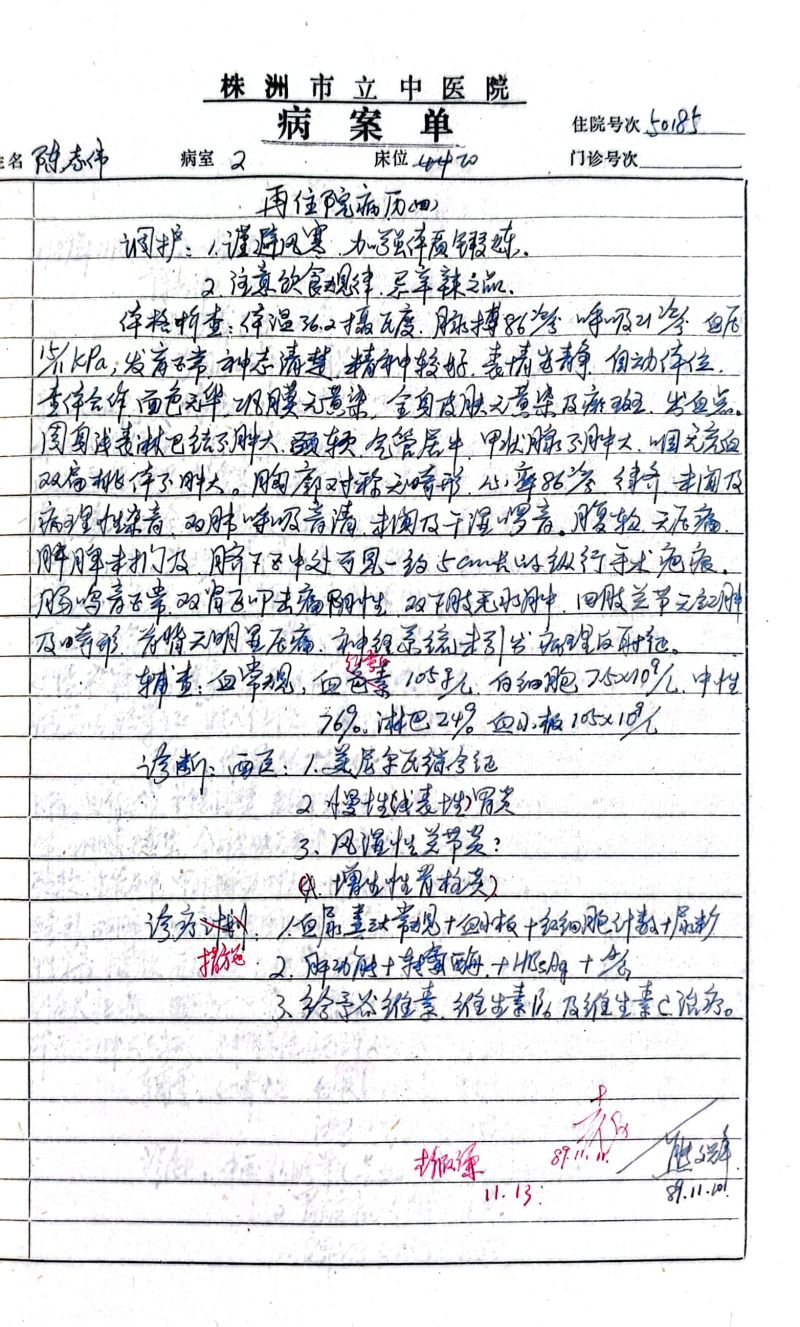 株洲市立中医院
病案单
住院号次 50185
姓名 陈志伟 病室 2 床位 门诊号次
再住院病历(四)
调护：1.谨避风寒，加强体质锻炼。
2.注意饮食规律，忌辛辣之品。
体格检查：体温36.2摄氏度，脉搏86次/分 呼吸21次/分 血压
15/11KPa，发育正常，神志清楚，精神较好，表情安静，自动体位，
查体合作，面色无华，巩膜无黄染，全身皮肤无黄染及瘀斑、出血点。
周身浅表淋巴结不肿大，颈软，气管居中，甲状腺不肿大，咽无充血
双扁桃体不肿大。胸廓对称无畸形，心率86次/分 律齐，未闻及
病理性杂音，双肺呼吸音清，未闻及干湿啰音。腹软，无压痛，
肝脾未扪及，脐下正中处可见一约5cm长的纵行手术疤痕。
肠鸣音正常，双肾区叩击痛阴性，双下肢无水肿，四肢关节无红肿
及畸形，脊椎无明显压痛，神经系统未引出病理反射征。
红蛋白
辅查：血常规，血色素105g/L，白细胞7.5x10⁹/L，中性
76%，淋巴24%，血小板105x10⁹/L
诊断：西医：1.美尼尔氏综合征
2.慢性(浅表性)胃炎
3.风湿性关节炎？
(4.增生性脊柱炎)
诊疗计划：1.血尿大常规+血小板+红细胞计数+尿
措施 2.肝功能+转氨酶+HBsAg+
3.给予谷维素，维生素B6及维生素C治疗。
89.11.11.
11.13
89.11.10